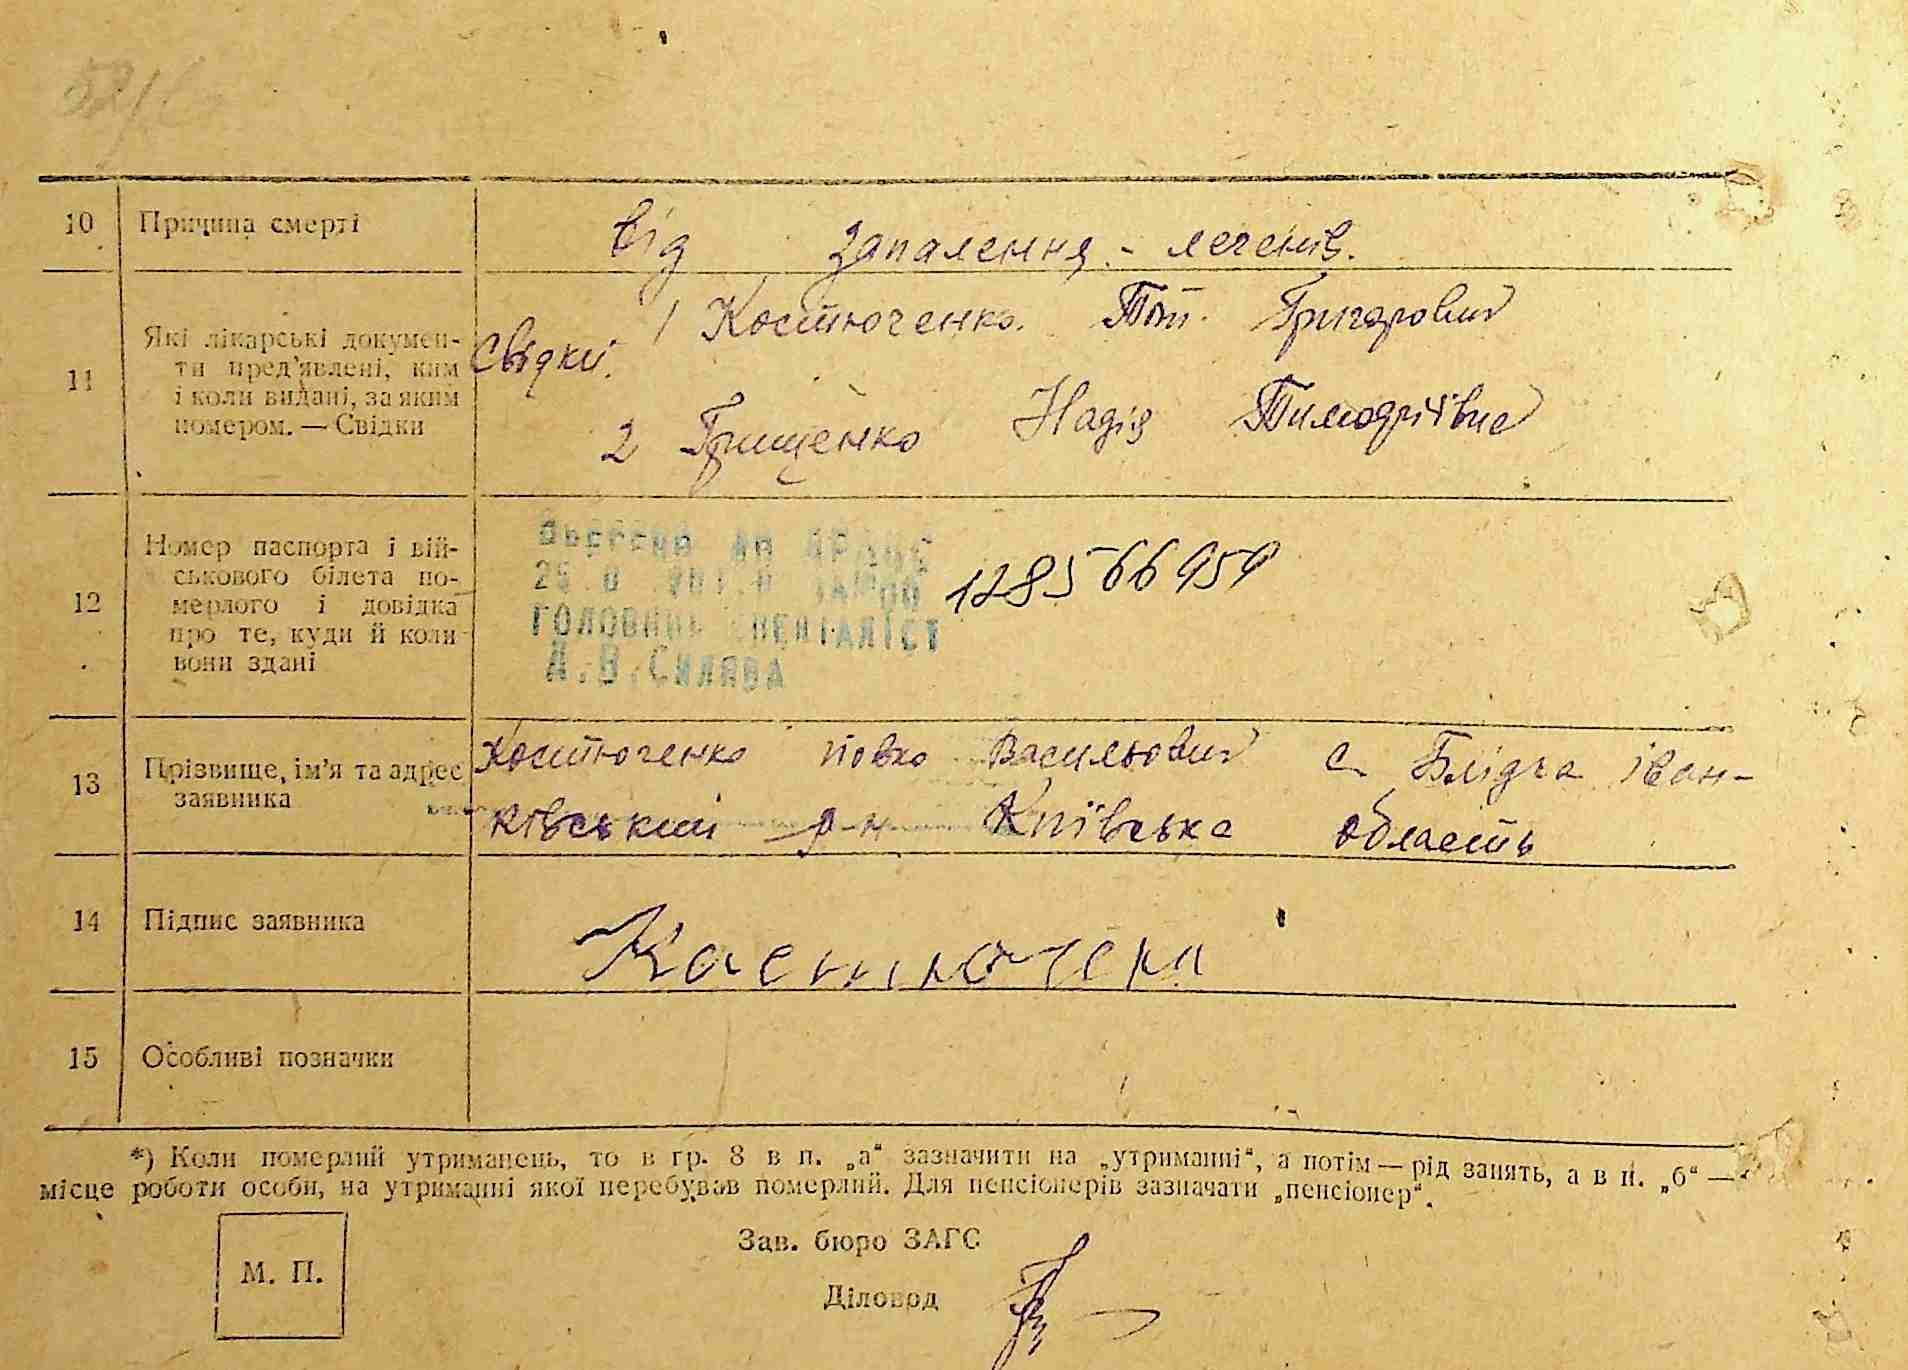 10 Причина смерті від запалення - легенів.
11 Які лікарські докумен-
ти пред'явлені, ким
і коли видані, за яким
номером. — Свідки
Свідки. 1 Костюченко Григорович
2 Грищенко Надія
12 Номер паспорта і вій-
ськового білета по-
мерлого і довідка
про те, куди й коли
вони здані
ГОЛОВНИЙ СПЕЦІАЛІСТ
А.В.СИЛЯВА
13 Прізвище, ім'я та адрес
заявника
Костюченко Васильович с. Блідча іван-
ківський р-н Київська область
14 Підпис заявника Костючен
15 Особливі позначки
*) Коли померлий утриманець, то в гр. 8 в п. „а“ зазначити на „утриманні“, а потім — рід занять, а в п. „б“ —
місце роботи особи, на утриманні якої перебував померлий. Для пенсіонерів зазначати „пенсіонер“.
Зав. бюро ЗАГС
М. П.
Діловод